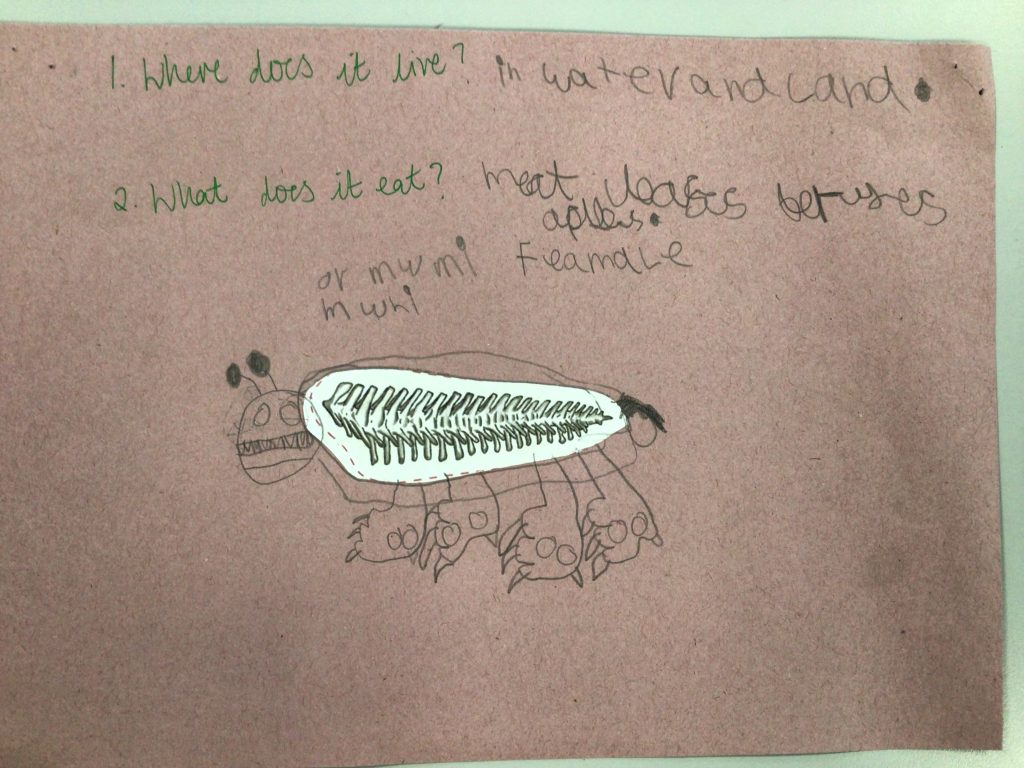 1. Where does it live? in water and Land.
2. What does it eat? meat beruses
Feamale
or mumi